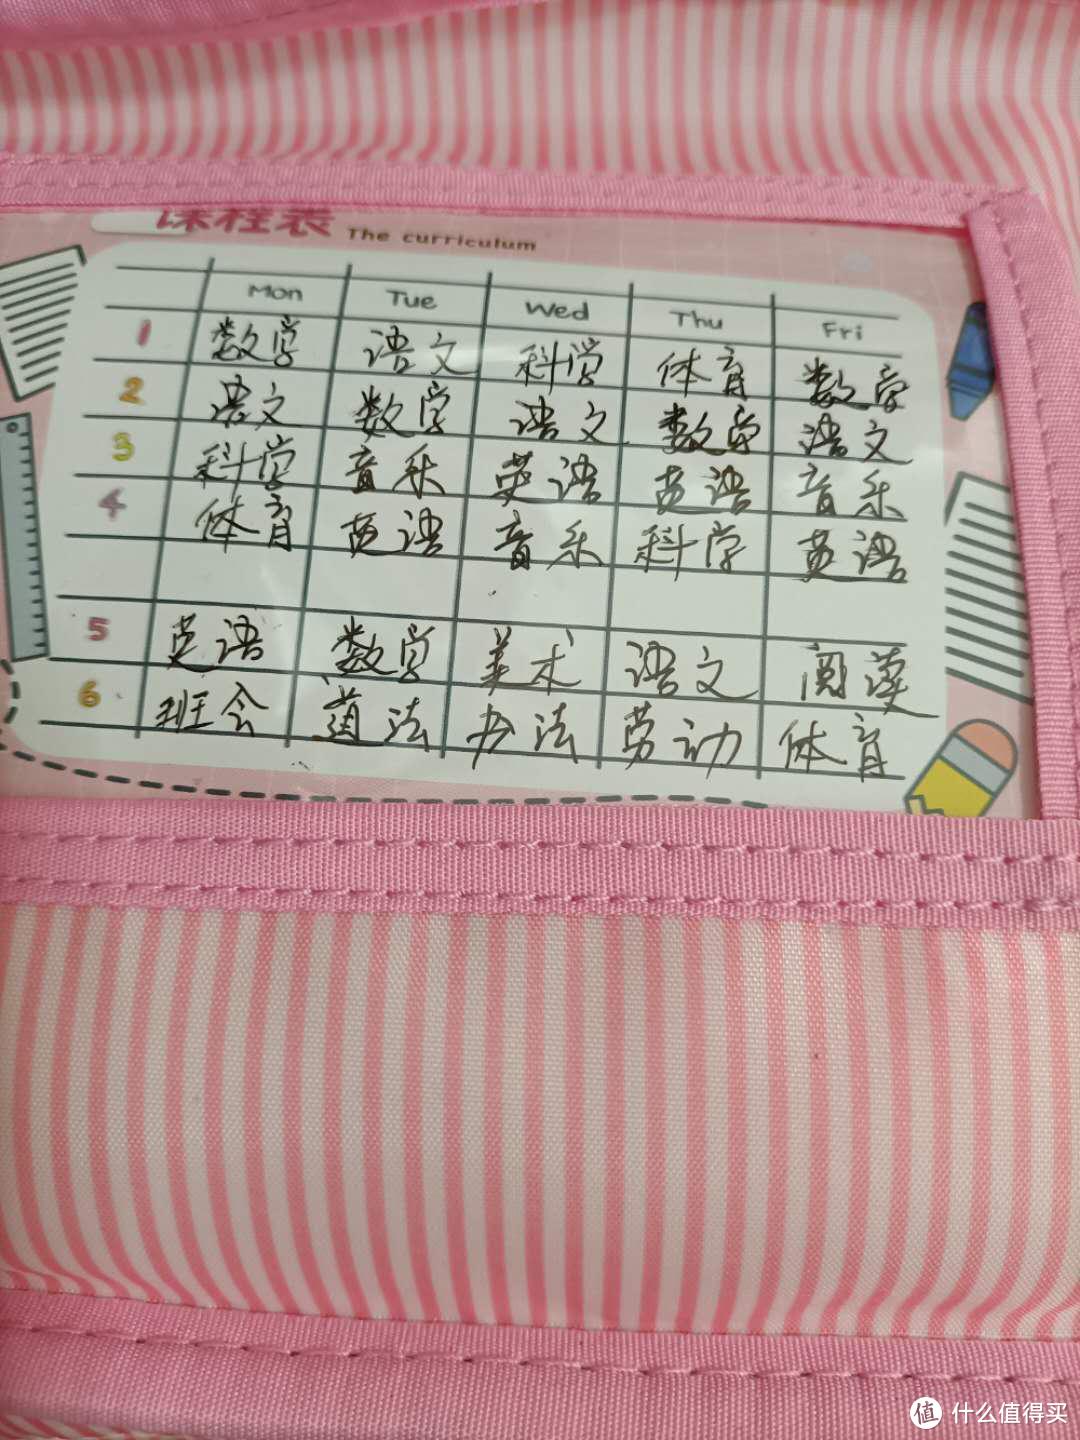 课程表 The curriculum
Mon Tue Wed Thu Fri
1 数学 语文 科学 体育 数学
2 语文 数学 语文 数学 语文
3 科学 音乐 英语 英语 音乐
4 体育 英语 音乐 科学 英语
5 英语 数学 美术 语文 阅读
6 班会 道法 书法 劳动 体育
值 什么值得买